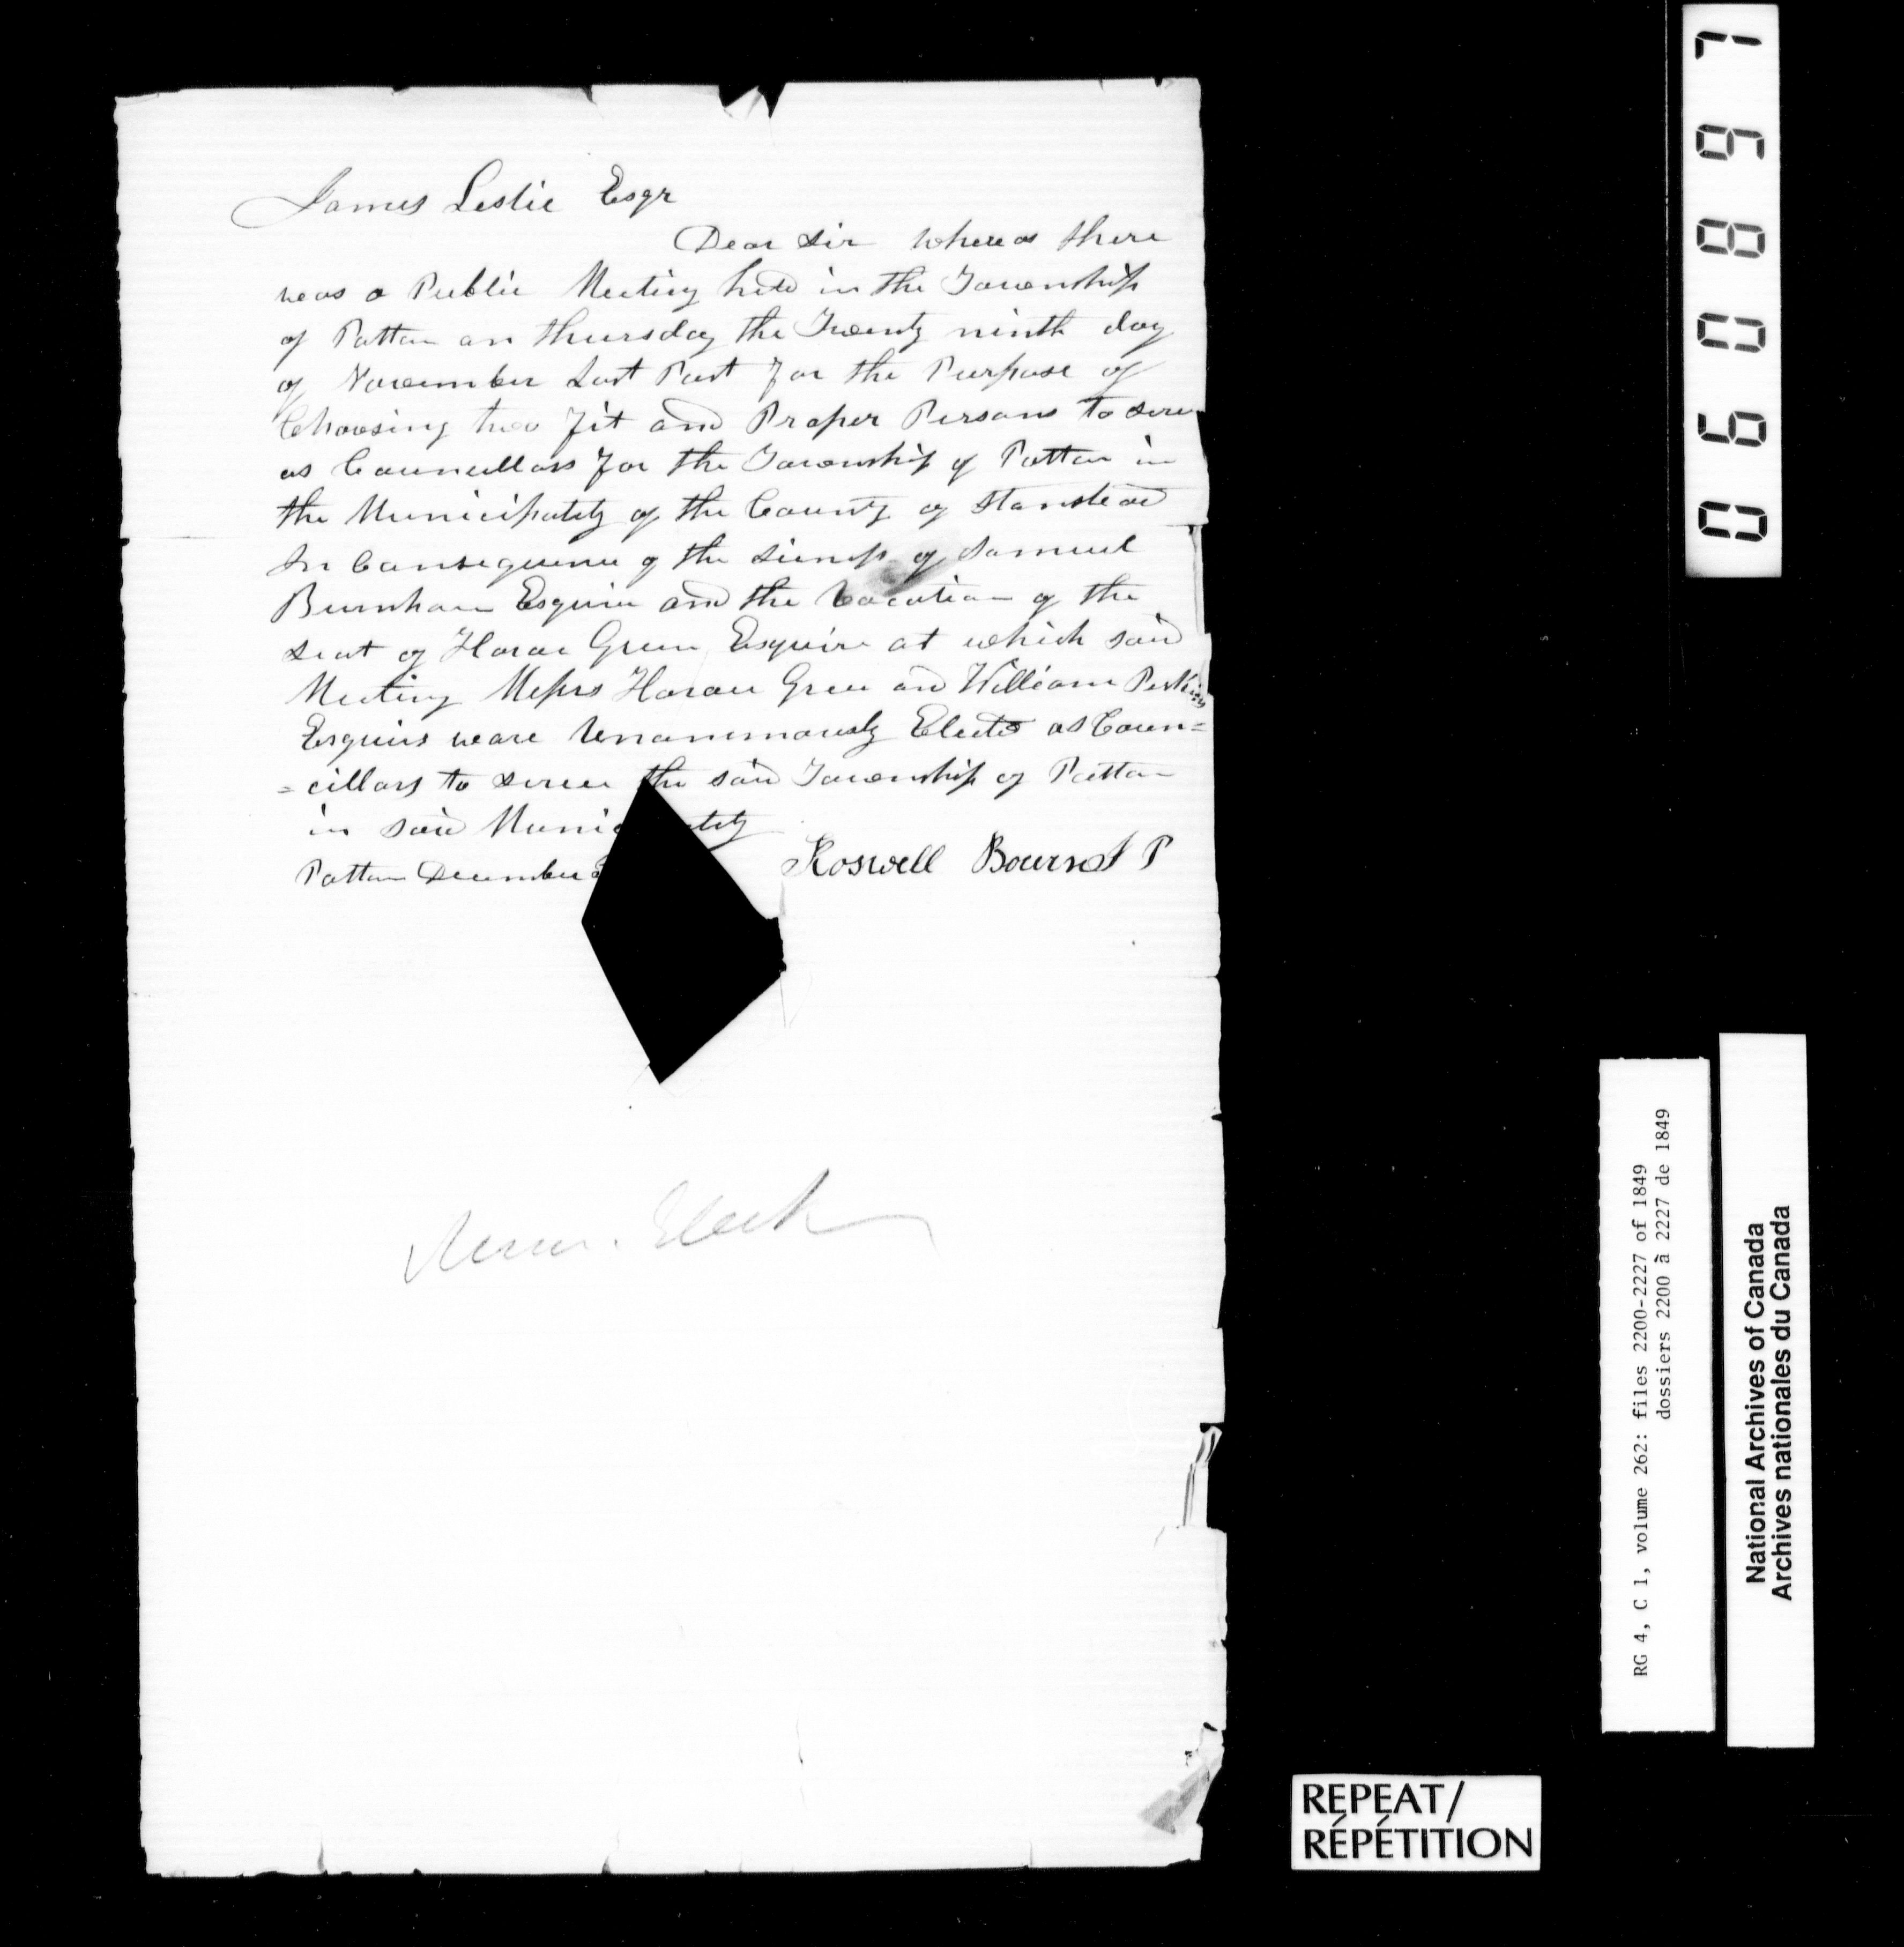 James Leslie Esqr
Dear Sir whereas there
was a Public Meeting held in the Township
of Potton on thursday the Twenty ninth day
of November Last Past for the Purpose of
Choosing two fit and Proper Persons to serve
as Councillors for the Township of Potton in
the Municipality of the County of Stanstead
In Consequence of the of Samuel
Burnham Esquire and the Vacation of the
seat of Horace Green Esquire at which said
Meeting Messrs Horace Green and William Perkins
Esquires ware Unanimously Elected as Coun=
=cillors to serve the said Township of Potton
in said Munic ality
Potton December
Roswell Bourn J P
REPEAT/
RÉPÉTITION
060897
RG 4, C 1, volume 262: files 2200-2227 of 1849
dossiers 2200 à 2227 de 1849
National Archives of Canada
Archives nationales du Canada